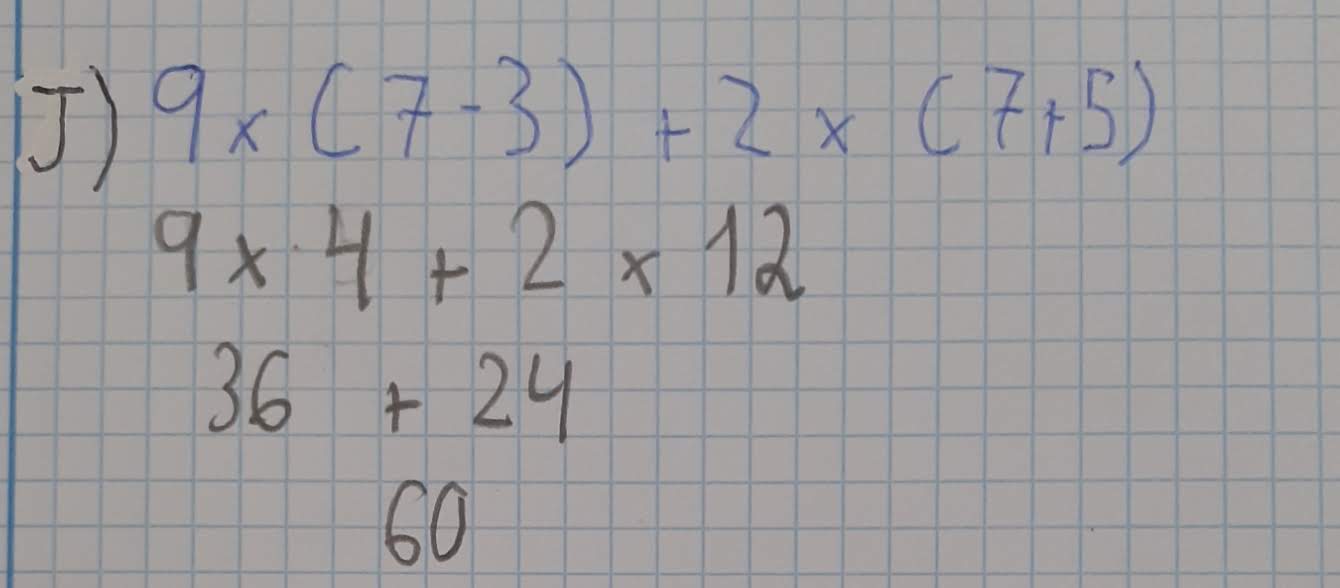 J) 9 × (7 - 3) + 2 × (7 + 5)
9 × 4 + 2 × 12
36 + 24
60